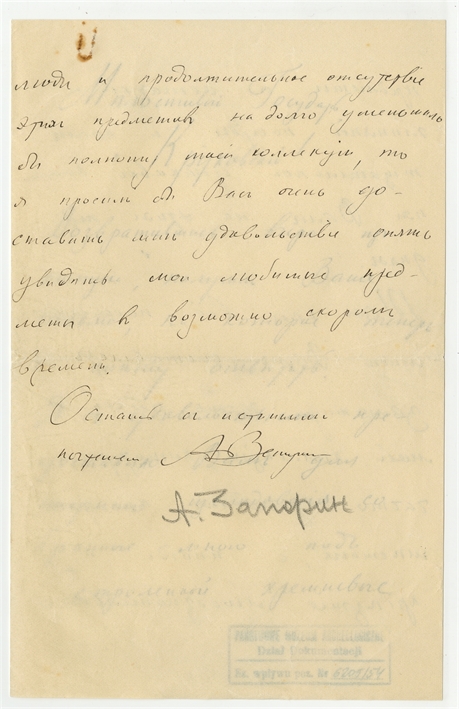 люди и продолжительное отсутствие
этих предметовъ на долго уменьшило
бы полноту моей коллекции, то
я просилъ бы Васъ очень до-
ставить мнѣ удовольствіе опять
увидать мои любимые пред-
меты въ возможно скоромъ
времени.
Остаюсь съ истиннымъ
почтеніемъ
А. Запорин
Dział Dokumentacji
Ks. wpływu poz. Nr